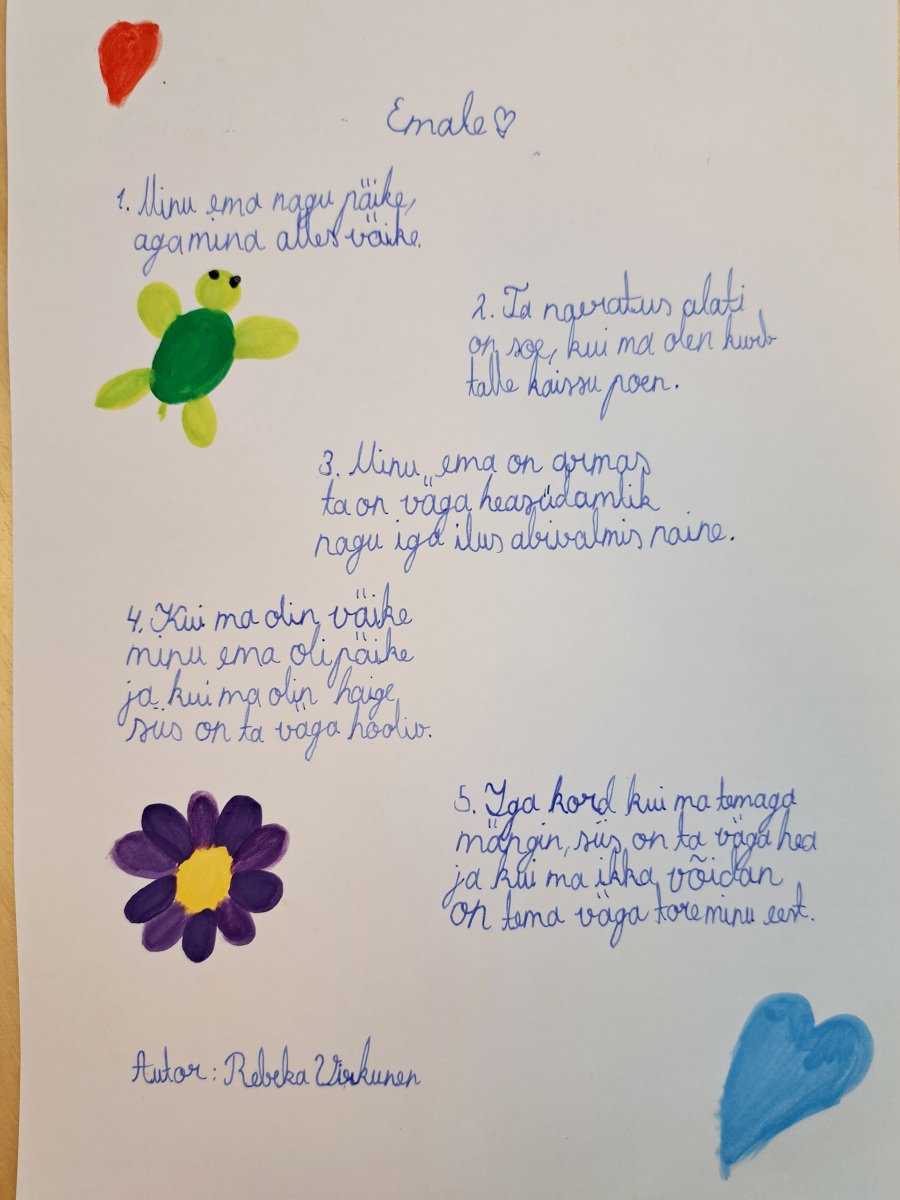 Emale♡
1. Minu ema nagu päike,
aga mina alles väike.
2. Ta naeratus alati
on soe, kui ma olen kurb
talle kaissu poen.
3. Minu ema on armas
ta on väga heasüdamlik
nagu iga ilus abivalmis naine.
4. Kui ma olin väike
minu ema oli päike
ja kui ma olin haige
siis on ta väga hooliv.
5. Iga kord kui ma temaga
mängin, siis on ta väga hea
ja kui ma ikka võidan
on tema väga tore minu eest.
Autor: Rebeka Virkunen